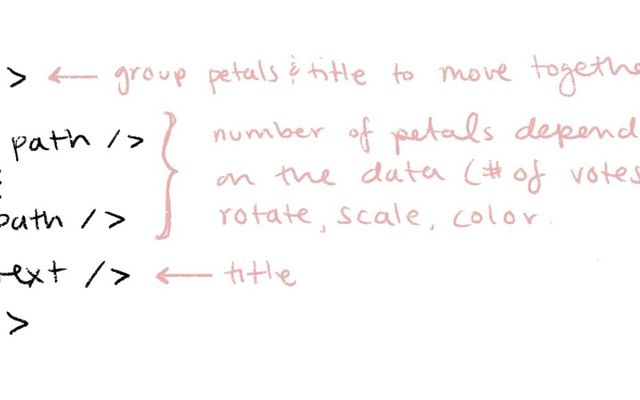 > ← group petals & title to move togethe
path /> number of petals depend
on the data (# of votes
path /> rotate, scale, color.
ext /> ← title
>